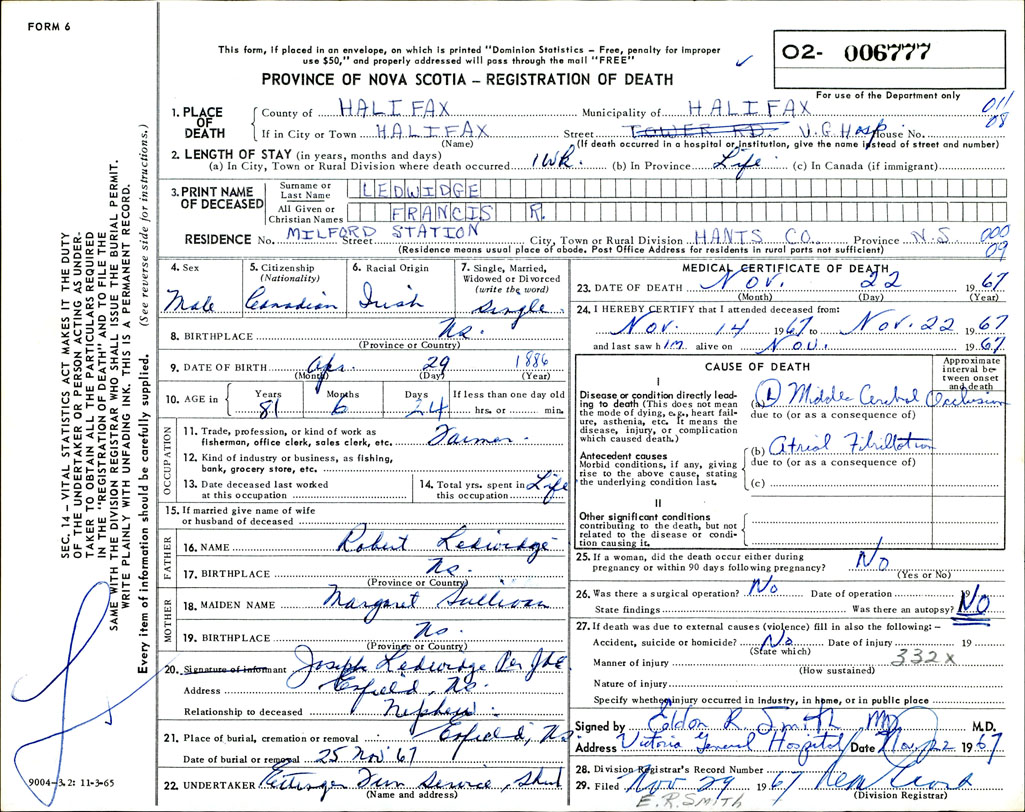 FORM 6
This form, if placed in an envelope, on which is printed "Dominion Statistics – Free, penalty for improper
use $50," and properly addressed will pass through the mail "FREE"
O2- 006777
PROVINCE OF NOVA SCOTIA – REGISTRATION OF DEATH
For use of the Department only
011
08
1. PLACE OF DEATH
County of HALIFAX Municipality of HALIFAX
If in City or Town HALIFAX Street TOWER RD. V.G. Hosp House No.
(Name) (If death occurred in a hospital or institution, give the name instead of street and number)
2. LENGTH OF STAY (in years, months and days)
(a) In City, Town or Rural Division where death occurred 1 WK. (b) In Province Life (c) In Canada (if immigrant)
3. PRINT NAME OF DECEASED
Surname or Last Name LEDWIDGE
All Given or Christian Names FRANCIS R.
RESIDENCE No. MILFORD STATION Street City, Town or Rural Division HANTS CO. Province N.S 000
(Residence means usual place of abode. Post Office Address for residents in rural parts not sufficient) 09
SEC. 14 – VITAL STATISTICS ACT MAKES IT THE DUTY
OF THE UNDERTAKER OR PERSON ACTING AS UNDER-
TAKER TO OBTAIN ALL THE PARTICULARS REQUIRED
IN THE "REGISTRATION OF DEATH" AND TO FILE THE
SAME WITH THE DIVISION REGISTRAR WHO SHALL ISSUE THE BURIAL PERMIT.
WRITE PLAINLY WITH UNFADING INK. THIS IS A PERMANENT RECORD.
Every item of information should be carefully supplied. (See reverse side for instructions.)
4. Sex Male
5. Citizenship (Nationality) Canadian
6. Racial Origin Irish
7. Single, Married, Widowed or Divorced (write the word) Single
8. BIRTHPLACE Ns.
(Province or Country)
9. DATE OF BIRTH Apr. 29 1886
(Month) (Day) (Year)
10. AGE in Years 81 Months 6 Days 24 If less than one day old
hrs. or min.
OCCUPATION
11. Trade, profession, or kind of work as
fisherman, office clerk, sales clerk, etc. Farmer.
12. Kind of industry or business, as fishing,
bank, grocery store, etc.
13. Date deceased last worked
at this occupation
14. Total yrs. spent in
this occupation Life
15. If married give name of wife
or husband of deceased
FATHER
16. NAME Robert Ledwidge
17. BIRTHPLACE Ns.
(Province or Country)
MOTHER
18. MAIDEN NAME Margaret Sullivan
19. BIRTHPLACE Ns.
(Province or Country)
20. Signature of informant Joseph Ledwidge Per
Address Enfield, Ns.
Relationship to deceased Nephew
21. Place of burial, cremation or removal Enfield, Ns
Date of burial or removal 25 Nov 67
22. UNDERTAKER Ettinger Fun Service,
(Name and address)
9004-3.2: 11-3-65
MEDICAL CERTIFICATE OF DEATH
23. DATE OF DEATH Nov. 22 1967
(Month) (Day) (Year)
24. I HEREBY CERTIFY that I attended deceased from:
Nov. 14 1967 to Nov. 22 1967
and last saw him alive on Nov. 1967
CAUSE OF DEATH
Approximate interval between onset and death
I
Disease or condition directly lead-
ing to death (This does not mean
the mode of dying, e.g., heart fail-
ure, asthenia, etc. It means the
disease, injury, or complication
which caused death.)
(a) (L) Middle Cerebral Occlusion
due to (or as a consequence of)
Antecedent causes
Morbid conditions, if any, giving
rise to the above cause, stating
the underlying condition last.
(b) Atrial Fibrillation
due to (or as a consequence of)
(c)
II
Other significant conditions
contributing to the death, but not
related to the disease or condi-
tion causing it.
25. If a woman, did the death occur either during
pregnancy or within 90 days following pregnancy? No
(Yes or No)
26. Was there a surgical operation? No Date of operation
State findings Was there an autopsy? No
27. If death was due to external causes (violence) fill in also the following:–
Accident, suicide or homicide? No Date of injury 19
(State which) 332x
Manner of injury
(How sustained)
Nature of injury
Specify whether injury occurred in industry, in home, or in public place
Signed by Eldon R. Smith MD M.D.
Address Victoria General Hospital Date Nov 22 1967
28. Division Registrar's Record Number
29. Filed Nov 29 1967
(Division Registrar)
E.R. SMITH